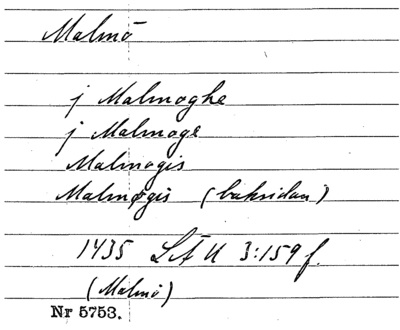 Malmö
j Malmoghe
j Malmoge
Malmogis
Malmøgis (baksidan)
1435 LÅU 3:159 f.
(Malmö)
Nr 5753.